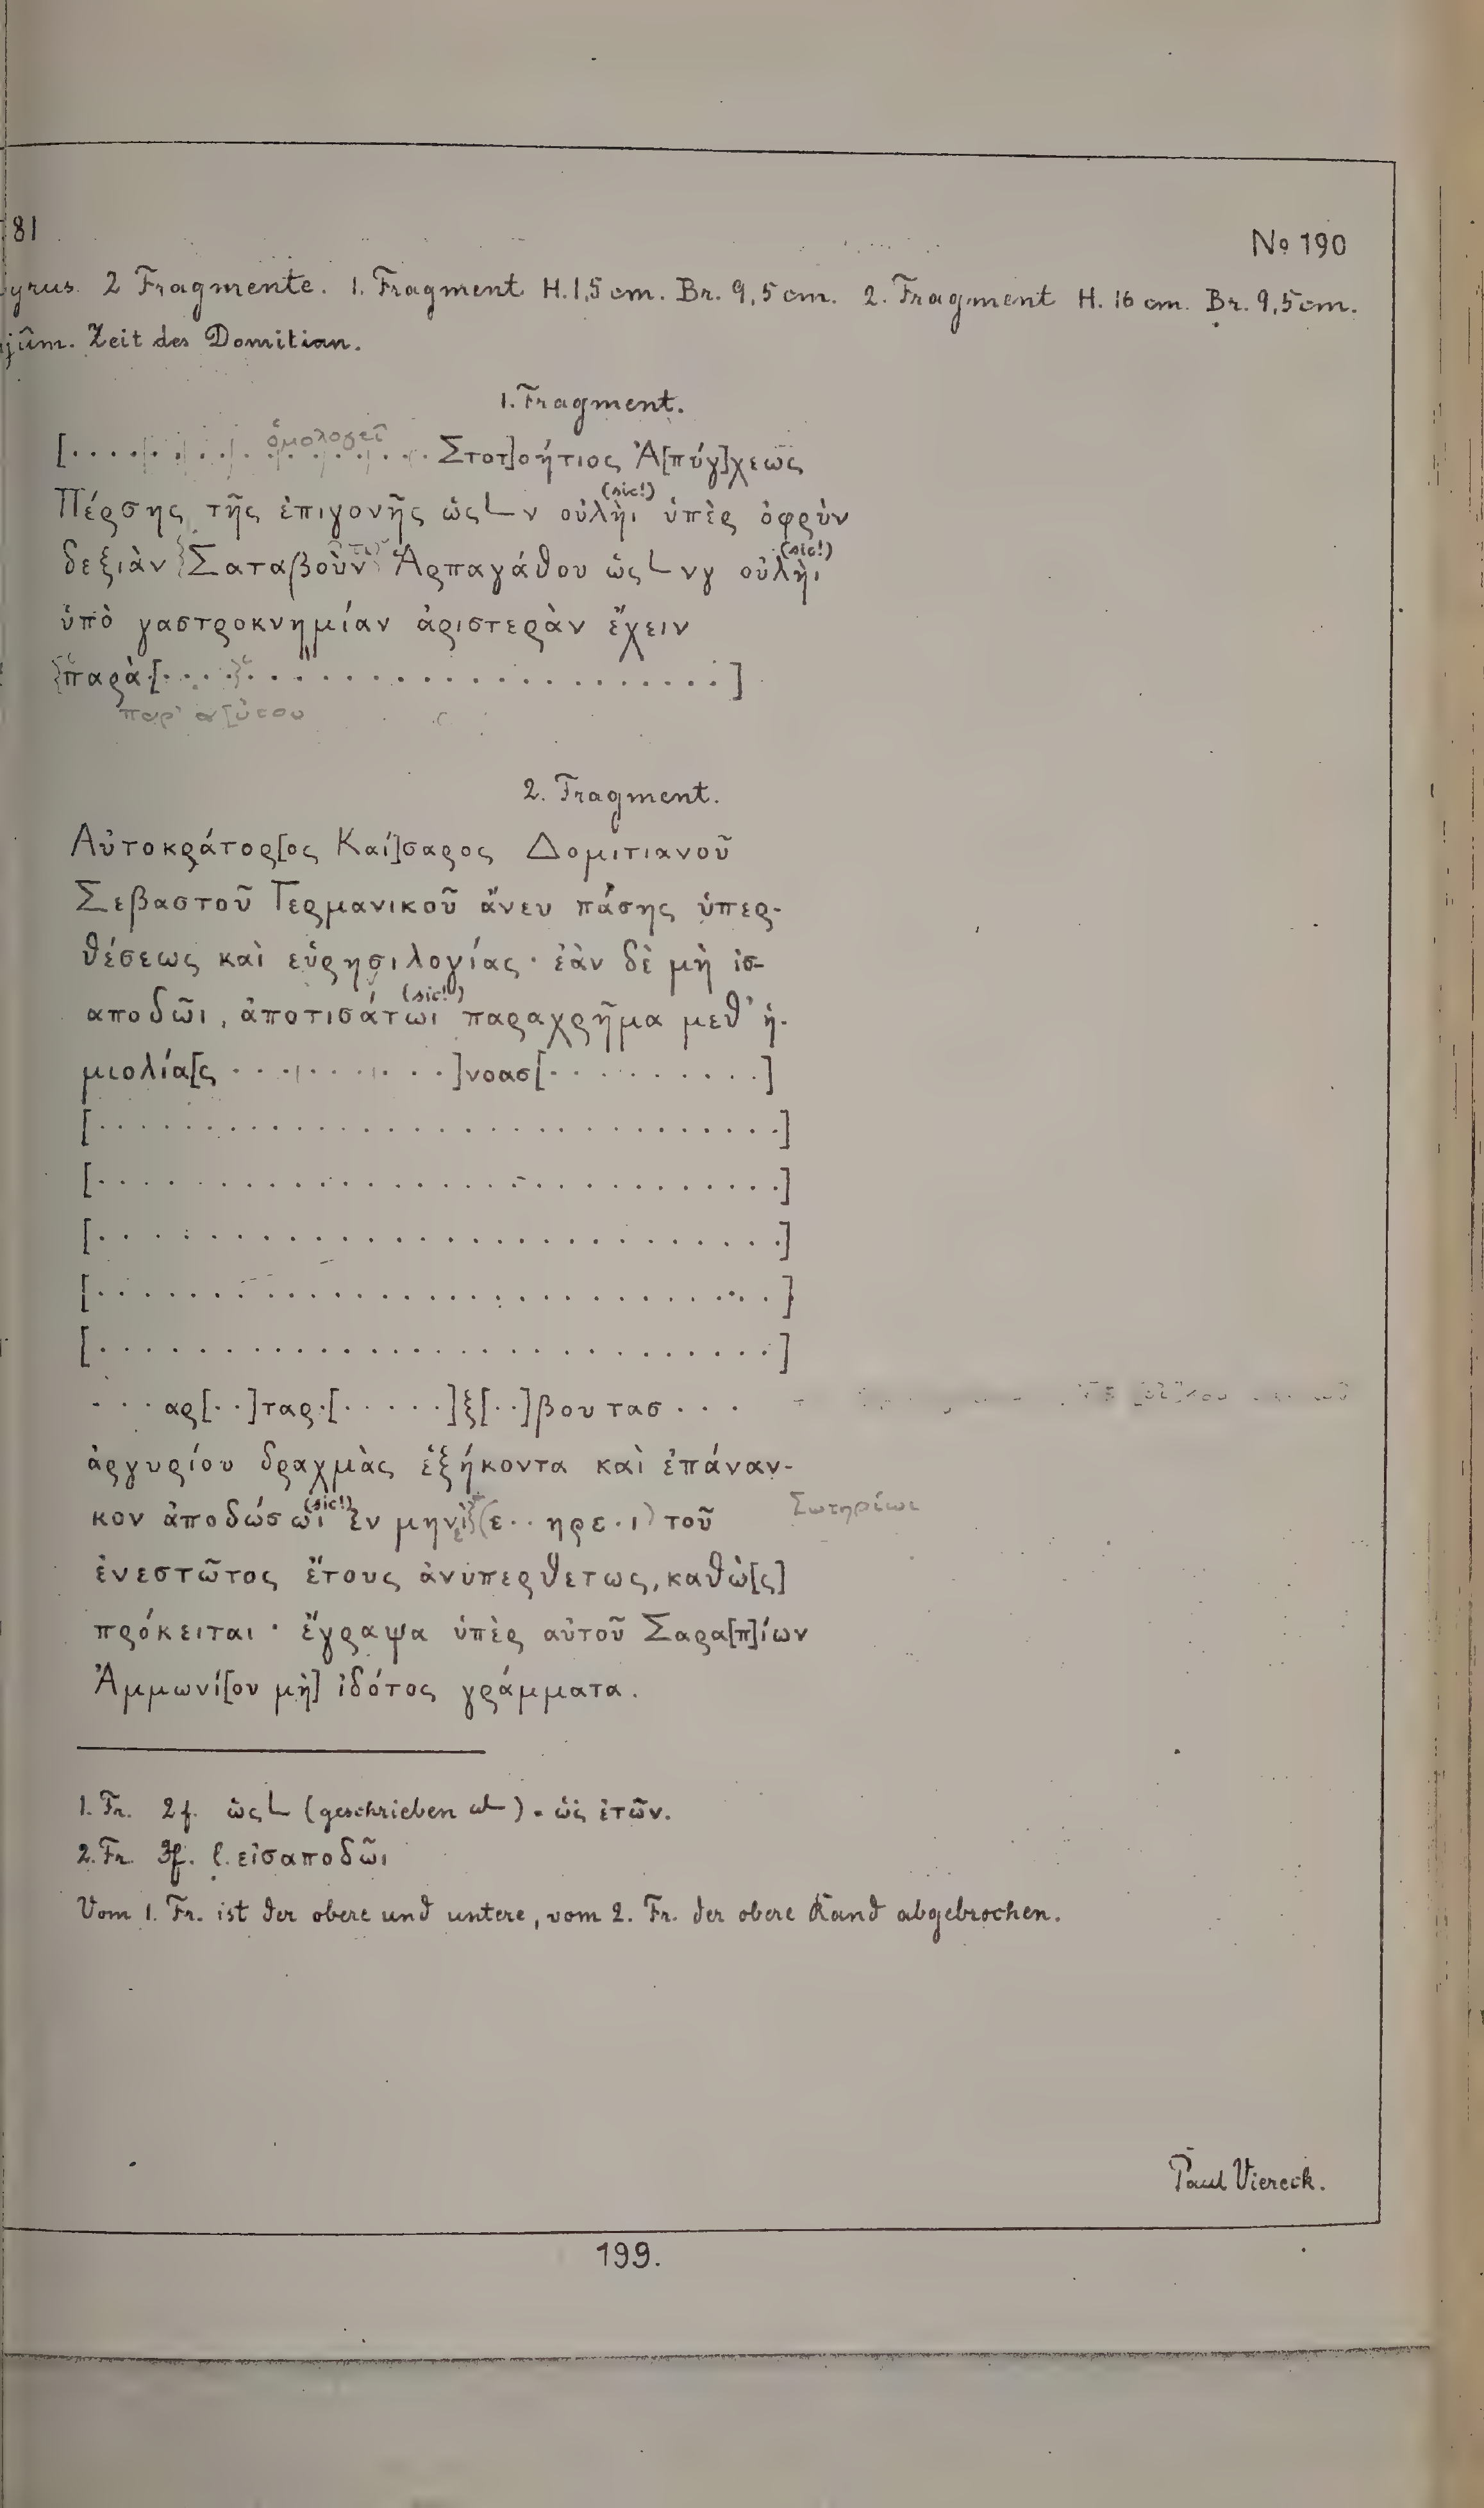 81
№ 190
yrus. 2 Fragmente. 1. Fragment H. 1,5 cm. Br. 9,5 cm. 2. Fragment H. 16 cm. Br. 9,5 cm.
jûm. Zeit des Domitian.
1. Fragment.
ὁμολογεῖ
[. . . . . . . . . . . . . . Στοτ]οήτιος Ἀ[πύγ]χεως
(sic!)
Πέρσης τῆς ἐπιγονῆς ὡς└ν οὐλὴι ὑπὲρ ὀφρὺν
(sic!)
δεξιὰν Σαταβοῦν Ἁρπαγάθου ὡς└νγ οὐλὴι
ὑπὸ γαστροκνημίαν ἀριστερὰν ἔχειν
παρὰ[. . . . . . . . . . . . . . . . . . . . . .]
παρ' α[ὐτου
2. Fragment.
Αὐτοκράτορ[ος Καί]σαρος Δομιτιανοῦ
Σεβαστοῦ Γερμανικοῦ ἄνευ πάσης ὑπερ-
θέσεως καὶ εὑρησιλογίας · ἐὰν δὲ μὴ ἰσ-
(sic!)
αποδῶι, ἀποτισάτωι παραχρῆμα μεθ' ἡ-
μιολία[ς . . . . . . . . .]νοασ[. . . . . . . . . .]
[. . . . . . . . . . . . . . . . . . . . . . . . . . .]
[. . . . . . . . . . . . . . . . . . . . . . . . . . .]
[. . . . . . . . . . . . . . . . . . . . . . . . . . .]
[. . . . . . . . . . . . . . . . . . . . . . . . . . .]
[. . . . . . . . . . . . . . . . . . . . . . . . . . .]
. . . αρ[. .]ταρ.[. . . . . .]ξ[. .]βου τασ . . .
ἀργυρίου δραχμὰς ἑξήκοντα καὶ ἐπάναν-
(sic!)
κον ἀποδώσωι ἐν μηνὶ (ε . . ηρε . ι) τοῦ Σωτηρίωι
ἐνεστῶτος ἔτους ἀνυπερθετως, καθὼ[ς]
πρόκειται · ἔγραψα ὑπὲρ αὐτοῦ Σαρα[π]ίων
Ἀμμωνί[ου μὴ] ἰδότος γράμματα.
1. Fr. 2f. ὡς└ (geschrieben ω└) = ὡς ἐτῶν.
2. Fr. 3f. l. εἰσαποδῶι
Vom 1. Fr. ist der obere und untere, vom 2. Fr. der obere Rand abgebrochen.
Paul Viereck.
199.